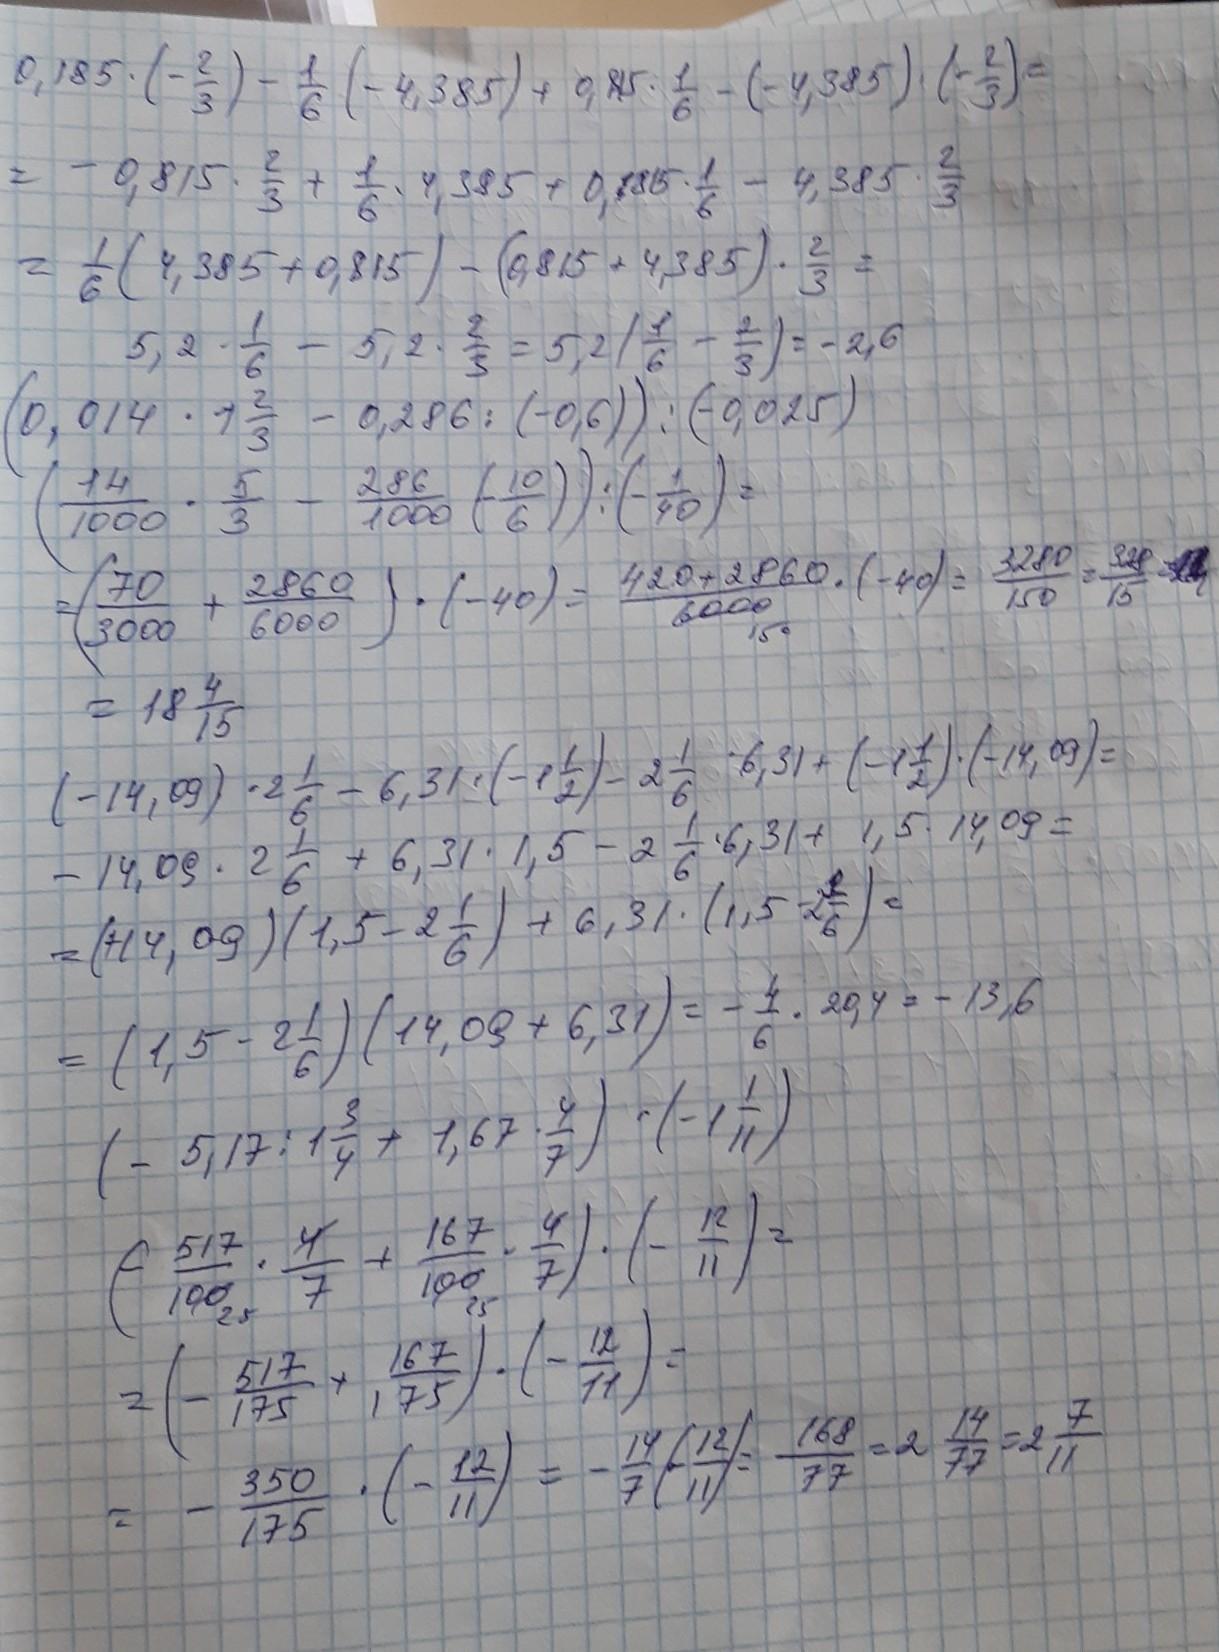 0,185·(-2/3) - 1/6 (-4,385) + 0,815·1/6 - (-4,385)·(-2/3) =
= - 0,815·2/3 + 1/6·4,385 + 0,815·1/6 - 4,385·2/3
= 1/6 (4,385 + 0,815) - (0,815 + 4,385)·2/3 =
5,2·1/6 - 5,2·2/3 = 5,2 (1/6 - 2/3) = -2,6
(0,014·1 2/3 - 0,286 : (-0,6)) : (-0,025)
(14/1000·5/3 - 286/1000 (-10/6)) : (-1/40) =
= (70/3000 + 2860/6000)·(-40) = 420+2860/6000·(-40) = 3280/150 = 328/15 =
150
= 18 4/15
(-14,09)·2 1/6 - 6,31·(-1 1/2) - 2 1/6·6,31 + (-1 1/2)·(-14,09) =
- 14,09·2 1/6 + 6,31·1,5 - 2 1/6·6,31 + 1,5·14,09 =
= (+14,09)(1,5 - 2 1/6) + 6,31·(1,5 - 2 1/6) =
= (1,5 - 2 1/6)(14,09 + 6,31) = - 4/6·20,4 = - 13,6
(- 5,17 : 1 3/4 + 1,67·4/7)·(-1 1/11)
(- 517/100·4/7 + 167/100·4/7)·(- 12/11) =
25 25
= (- 517/175 + 167/175)·(- 12/11) =
= - 350/175·(- 12/11) = - 14/7 (- 12/11) = 168/77 = 2 14/77 = 2 7/11